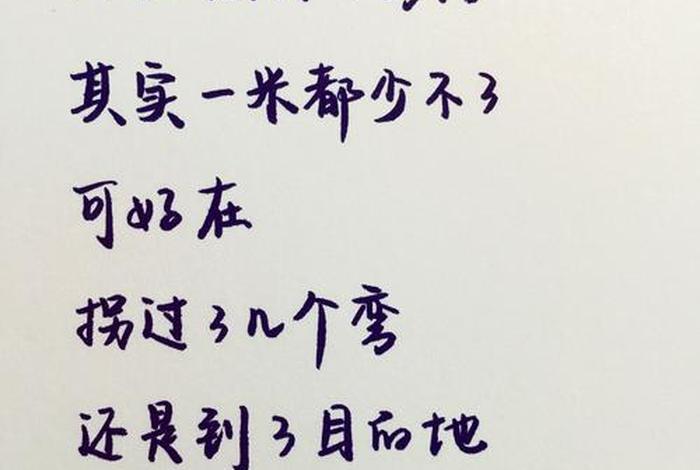 其实一米都少不了
可好在
拐过了几个弯
还是到了目的地